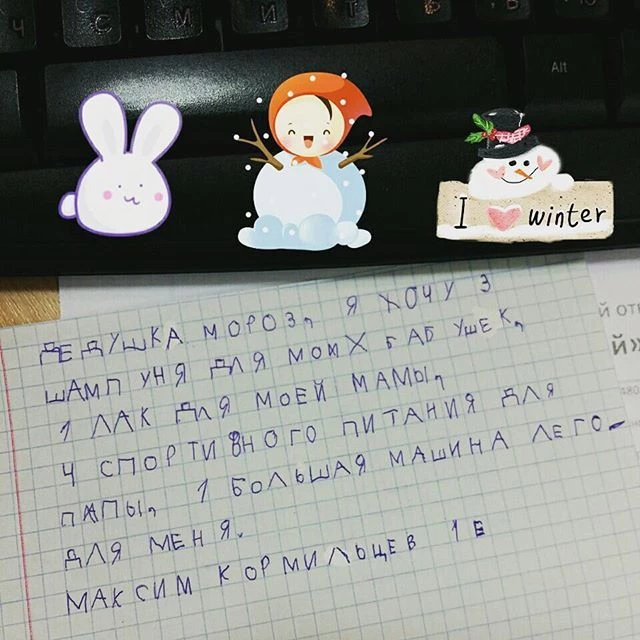 Ч С М И Т Ь Б Ю
Alt
I winter
й от
й»
ДЕДУШКА МОРОЗ, Я ХОЧУ 3
ШАМПУНЯ ДЛЯ МОИХ БАБУШЕК,
1 ЛАК ДЛЯ МОЕЙ МАМЫ,
4 СПОРТИВНОГО ПИТАНИЯ ДЛЯ
ПАПЫ, 1 БОЛЬШАЯ МАШИНА ЛЕГО-
ДЛЯ МЕНЯ.
МАКСИМ КОРМИЛЬЦЕВ 1Е